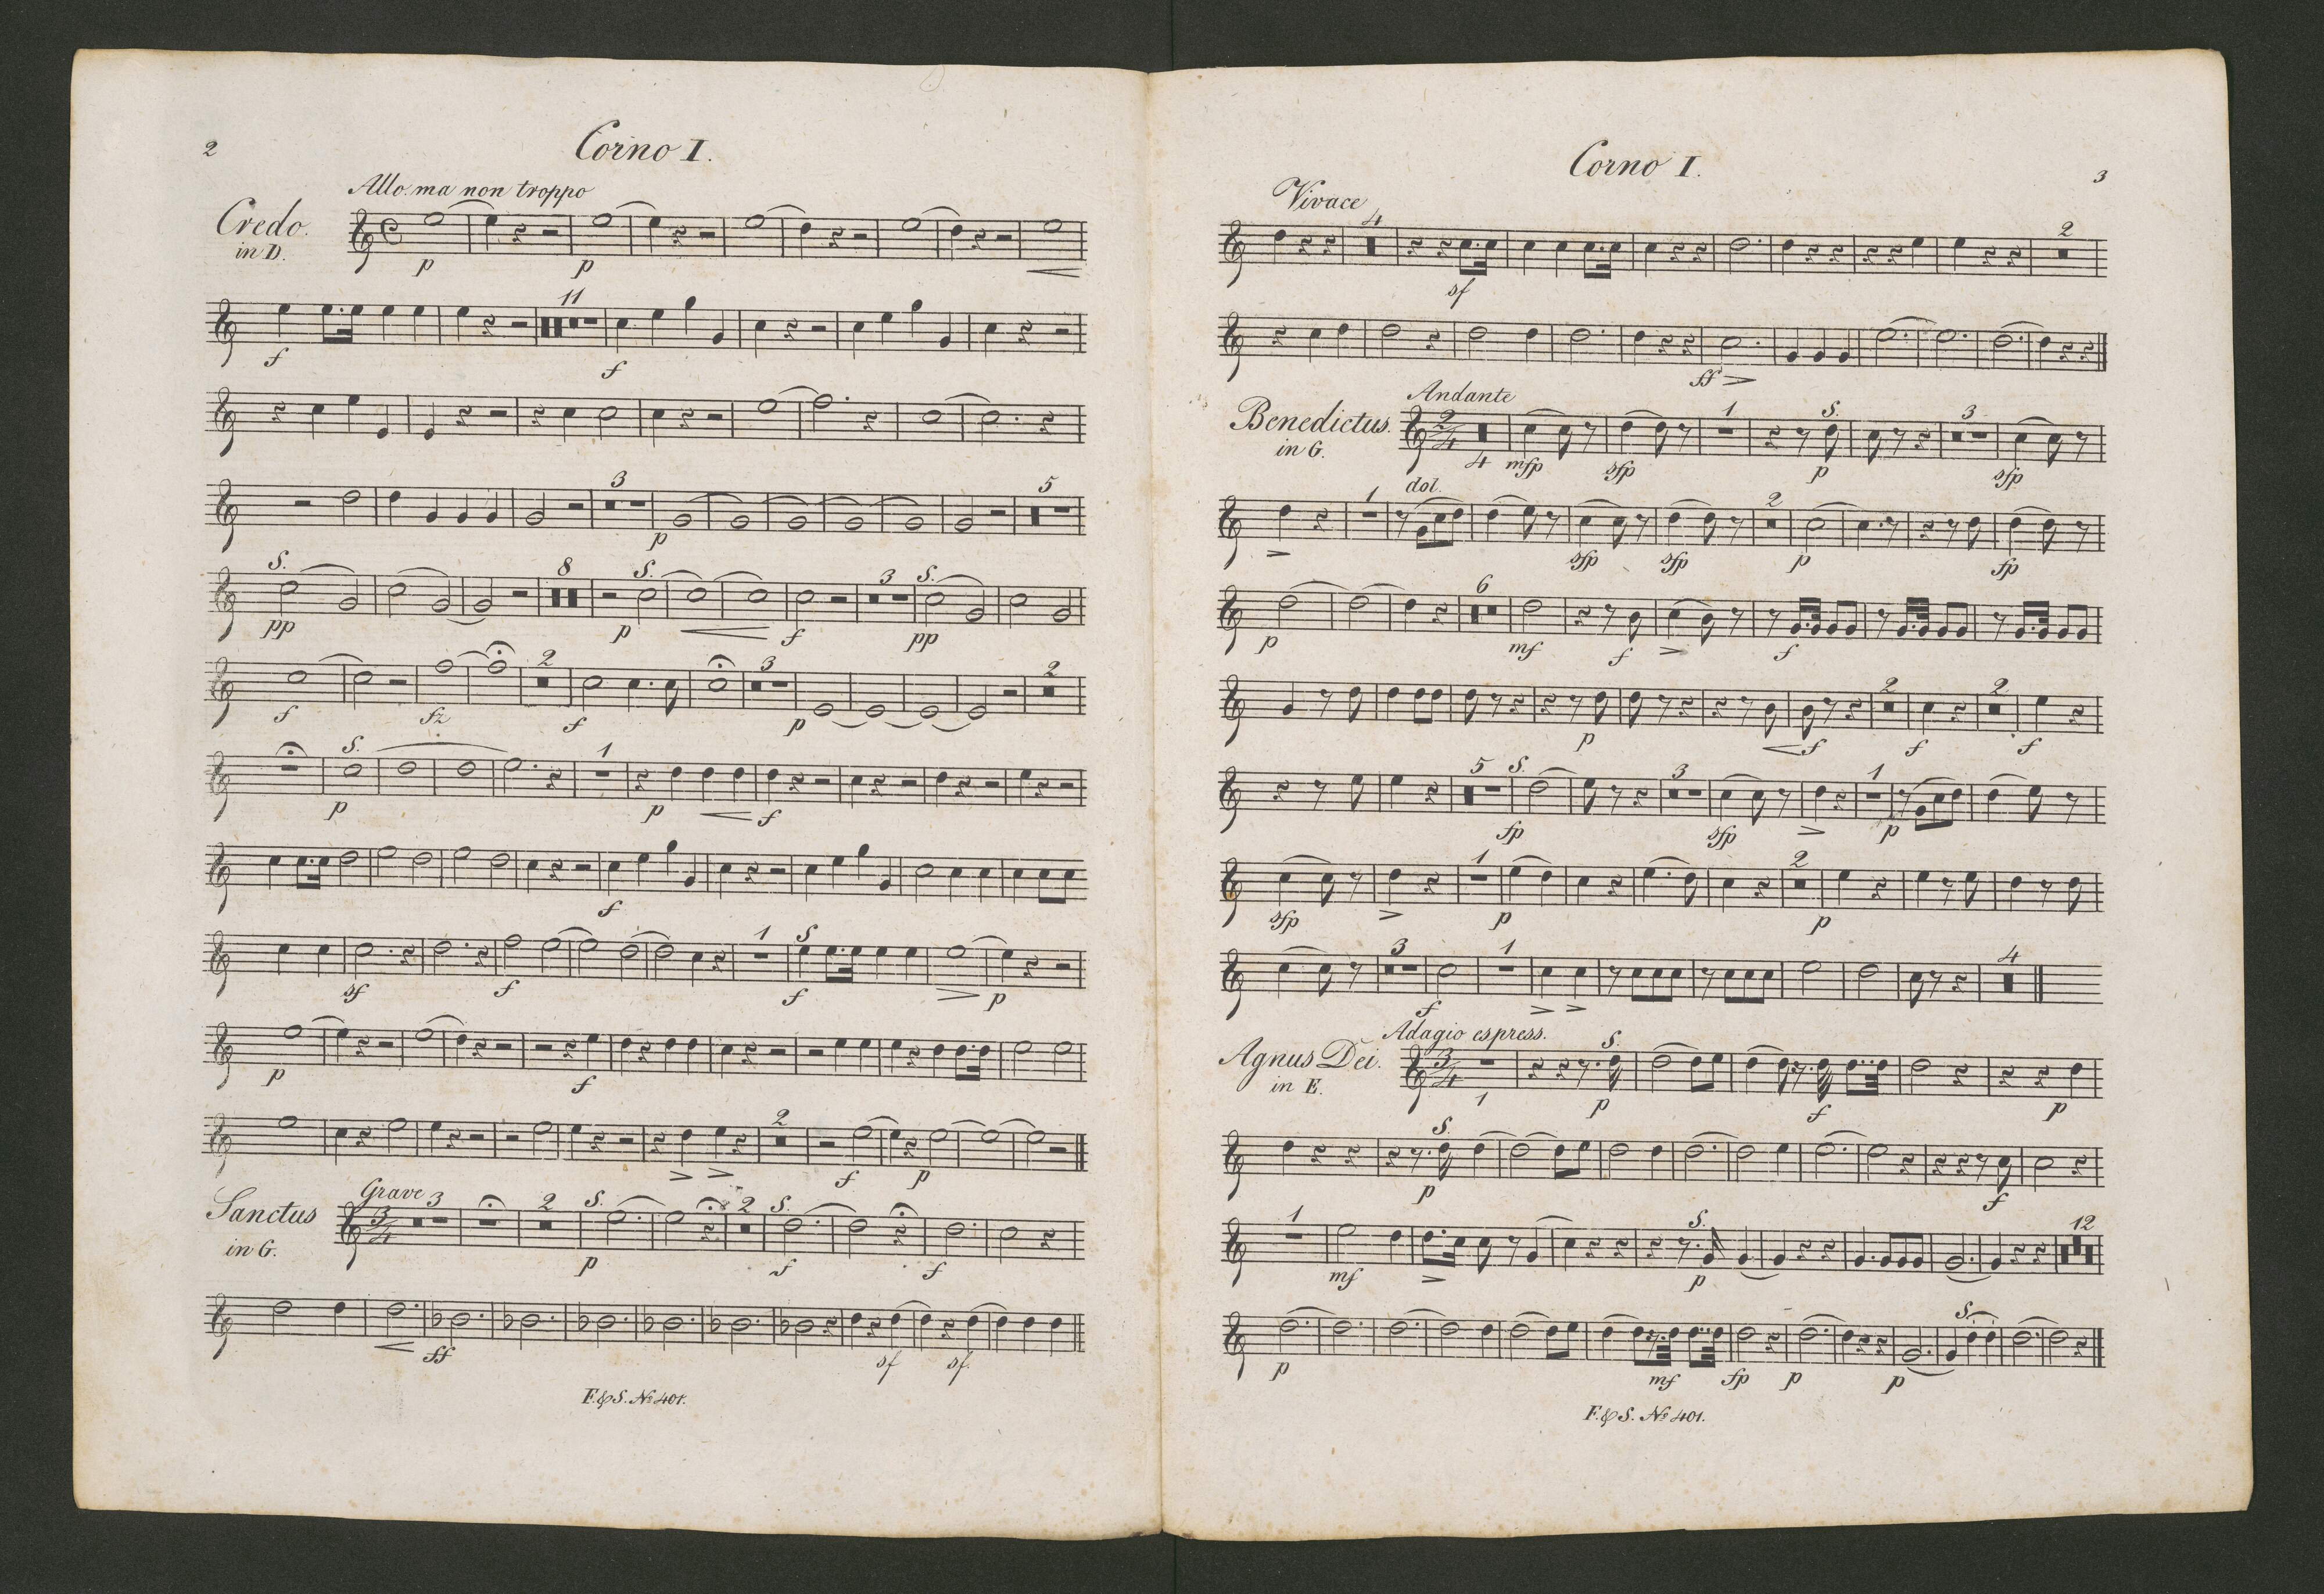 2
Corno I.
Allo. ma non troppo
Credo.
in D.
p p
11
f f
3 5
p
S. 8 S. 3 S.
pp p f pp
2 3 2
f fz f p
S. 1
p p f
f
1 S
sf f f p
p f
2
f p
Grave
Sanctus
in G.
3 2 S. 2 S.
p f f
ff sf sf.
F. & S. No 401.
Corno I.
3
Vivace
4 2
sf
ff
Andante
Benedictus.
in G.
2/4 4 1 S. 3
mfp sfp p sfp
1 dol. 2
sfp sfp p fp
6
p mf f f
2 2
p f f f
5 S. 3 1
fp sfp p
1 2
sfp p p
3 1 4
f
Adagio espress.
Agnus Dei.
in E.
3/4 1 S.
p f p
S.
p f
1 S. 12
mf p
S.
p mf fp p p
F. & S. No 401.